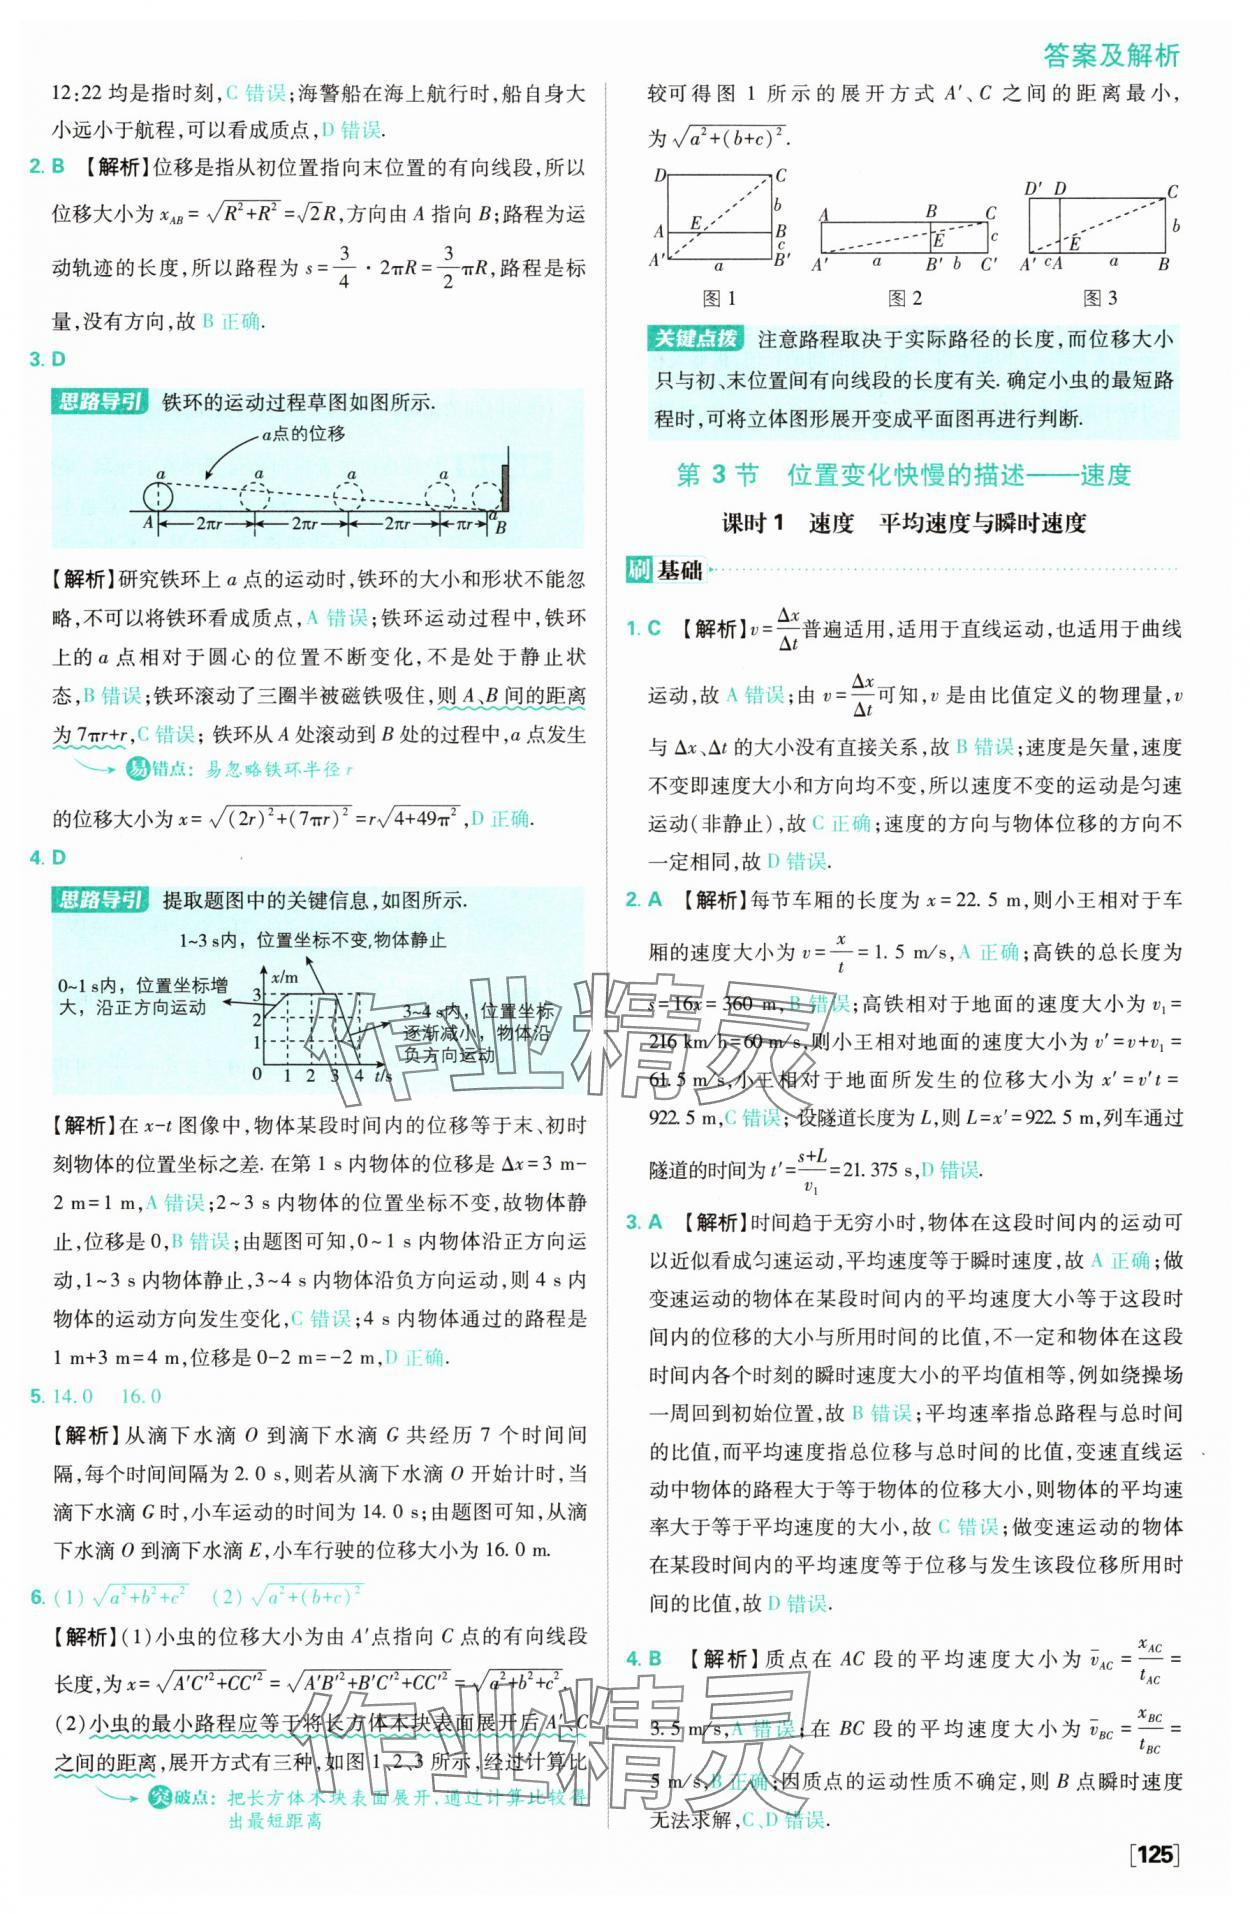 答案及解析
12:22 均是指时刻,C 错误;海警船在海上航行时,船自身大
小远小于航程,可以看成质点,D 错误.
2. B 【解析】位移是指从初位置指向末位置的有向线段,所以
位移大小为 x_{AB} = √(R²+R²) = √2R,方向由 A 指向 B;路程为运
动轨迹的长度,所以路程为 s = 3/4 · 2πR = 3/2 πR,路程是标
量,没有方向,故 B 正确.
3. D
思路导引 铁环的运动过程草图如图所示.
a点的位移
a a a a
a
A 2πr 2πr 2πr πr B
【解析】研究铁环上 a 点的运动时,铁环的大小和形状不能忽
略,不可以将铁环看成质点,A 错误;铁环运动过程中,铁环
上的 a 点相对于圆心的位置不断变化,不是处于静止状
态,B 错误;铁环滚动了三圈半被磁铁吸住,则 A、B 间的距离
为 7πr+r,C 错误;铁环从 A 处滚动到 B 处的过程中,a 点发生
易错点:易忽略铁环半径 r
的位移大小为 x = √((2r)²+(7πr)²) = r√(4+49π²),D 正确.
4. D
思路导引 提取题图中的关键信息,如图所示.
1~3 s内,位置坐标不变,物体静止
0~1 s内,位置坐标增
大,沿正方向运动
x/m
3
2
1
0 1 2 3 4 t/s
3~4 s内,位置坐标
逐渐减小,物体沿
负方向运动
【解析】在 x-t 图像中,物体某段时间内的位移等于末、初时
刻物体的位置坐标之差. 在第 1 s 内物体的位移是 Δx = 3 m-
2 m = 1 m,A 错误;2~3 s 内物体的位置坐标不变,故物体静
止,位移是 0,B 错误;由题图可知,0~1 s 内物体沿正方向运
动,1~3 s 内物体静止,3~4 s 内物体沿负方向运动,则 4 s 内
物体的运动方向发生变化,C 错误;4 s 内物体通过的路程是
1 m+3 m = 4 m,位移是 0-2 m = -2 m,D 正确.
5. 14.0 16.0
【解析】从滴下水滴 O 到滴下水滴 G 共经历 7 个时间间
隔,每个时间间隔为 2.0 s,则若从滴下水滴 O 开始计时,当
滴下水滴 G 时,小车运动的时间为 14.0 s;由题图可知,从滴
下水滴 O 到滴下水滴 E,小车行驶的位移大小为 16.0 m.
6. (1) √(a²+b²+c²) (2) √(a²+(b+c)²)
【解析】(1)小虫的位移大小为由 A′点指向 C 点的有向线段
长度,为 x = √(A′C′²+CC′²) = √(A′B′²+B′C′²+CC′²) = √(a²+b²+c²).
(2)小虫的最小路程应等于将长方体木块表面展开后 A′、C
之间的距离,展开方式有三种,如图 1、2、3 所示,经过计算比
突破点:把长方体木块表面展开,通过计算比较得
出最短距离
较可得图 1 所示的展开方式 A′、C 之间的距离最小,
为 √(a²+(b+c)²).
D C b E A B c A′ a B′
图 1
A B C E c A′ a B′ b C′
图 2
D′ D C b E A′ c A a B
图 3
关键点拨 注意路程取决于实际路径的长度,而位移大小
只与初、末位置间有向线段的长度有关. 确定小虫的最短路
程时,可将立体图形展开变成平面图再进行判断.
第 3 节 位置变化快慢的描述——速度
课时 1 速度 平均速度与瞬时速度
刷基础
1. C 【解析】v = Δx/Δt 普遍适用,适用于直线运动,也适用于曲线
运动,故 A 错误;由 v = Δx/Δt 可知,v 是由比值定义的物理量,v
与 Δx、Δt 的大小没有直接关系,故 B 错误;速度是矢量,速度
不变即速度大小和方向均不变,所以速度不变的运动是匀速
运动(非静止),故 C 正确;速度的方向与物体位移的方向不
一定相同,故 D 错误.
2. A 【解析】每节车厢的长度为 x = 22.5 m,则小王相对于车
厢的速度大小为 v = x/t = 1.5 m/s,A 正确;高铁的总长度为
s = 16x = 360 m,B 错误;高铁相对于地面的速度大小为 v₁ =
216 km/h = 60 m/s,则小王相对地面的速度大小为 v′ = v+v₁ =
61.5 m/s,小王相对于地面所发生的位移大小为 x′ = v′t =
922.5 m,C 错误;设隧道长度为 L,则 L = x′ = 922.5 m,列车通过
隧道的时间为 t′ = (s+L)/v₁ = 21.375 s,D 错误.
3. A 【解析】时间趋于无穷小时,物体在这段时间内的运动可
以近似看成匀速运动,平均速度等于瞬时速度,故 A 正确;做
变速运动的物体在某段时间内的平均速度大小等于这段时
间内的位移的大小与所用时间的比值,不一定和物体在这段
时间内各个时刻的瞬时速度大小的平均值相等,例如绕操场
一周回到初始位置,故 B 错误;平均速率指总路程与总时间
的比值,而平均速度指总位移与总时间的比值,变速直线运
动中物体的路程大于等于物体的位移大小,则物体的平均速
率大于等于平均速度的大小,故 C 错误;做变速运动的物体
在某段时间内的平均速度等于位移与发生该段位移所用时
间的比值,故 D 错误.
4. B 【解析】质点在 AC 段的平均速度大小为 v̄_{AC} = x_{AC}/t_{AC} =
3.5 m/s,A 错误;在 BC 段的平均速度大小为 v̄_{BC} = x_{BC}/t_{BC} =
5 m/s,B 正确;因质点的运动性质不确定,则 B 点瞬时速度
无法求解,C、D 错误.
[125]
作业精灵
作业精灵